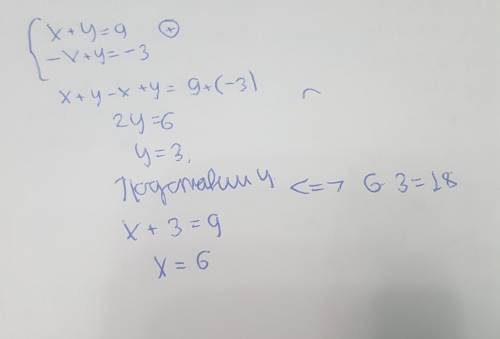 x + y = 9 ⊕
-x + y = -3
x + y - x + y = 9 + (-3)
2y = 6
y = 3,
Подставим y <=> 6 3 = 18
x + 3 = 9
x = 6